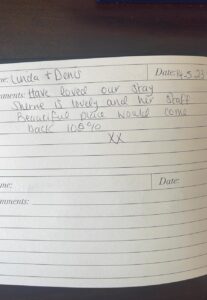 me: Linda + Denis Date: 14.5.23
mments: Have loved our stay
Sherrie is lovely and her staff
Beautiful place would come
back 100%
XX
me: Date:
mments: